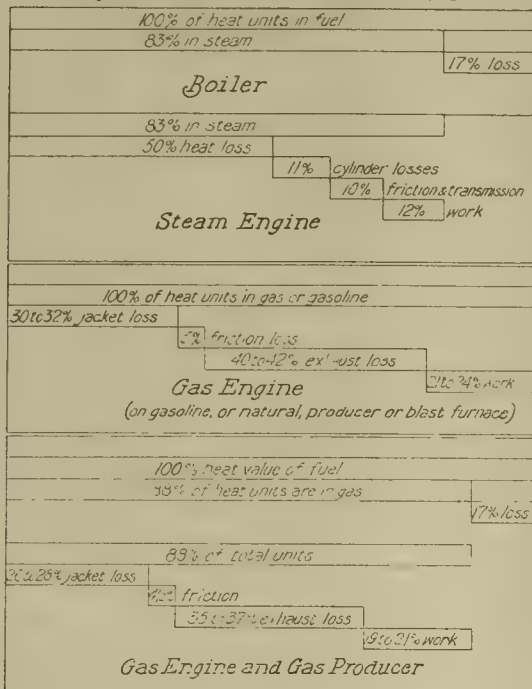 100% of heat units in fuel
83% in steam
17% loss
Boiler
83% in steam
50% heat loss
11% cylinder losses
10% friction & transmission
12% work
Steam Engine
100% of heat units in gas or gasoline
30 to 32% jacket loss
5% friction loss
40 to 42% loss
Gas Engine
21 to 24% work
(on gasoline, or natural, producer or blast furnace)
100% heat value of fuel
of heat units are in gas
17% loss
of total units
jacket loss
friction
35 to 37% exhaust loss
19 to 21% work
Gas Engine and Gas Producer